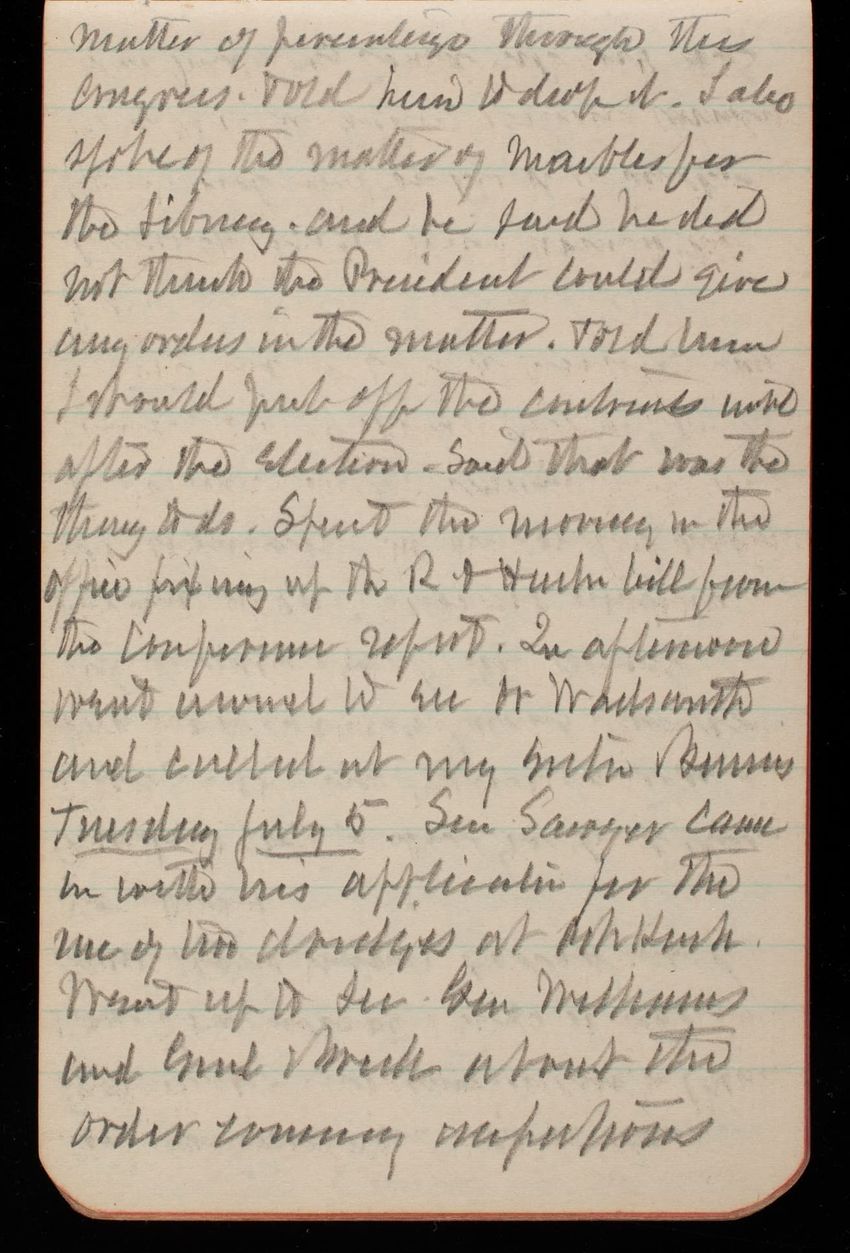 matter of percentage through this
Congress. Told him to drop it. I also
spoke of the matter of marbles for
the Library. and he said he did
not think the President could give
any orders in the matter. Told him
I should put off the contracts until
after the Election. Said that was the
thing to do. Spent the morning in the
office fixing up the R & Harbr bill from
the Conference report. In afternoon
went around to see Dr Wadsworth
and called at my
Tuesday July 5. Sen Sawyer came
in with his application for the
use of two dredges at Oshkosh.
Went up to see Gen Williams
and Genl about the
order